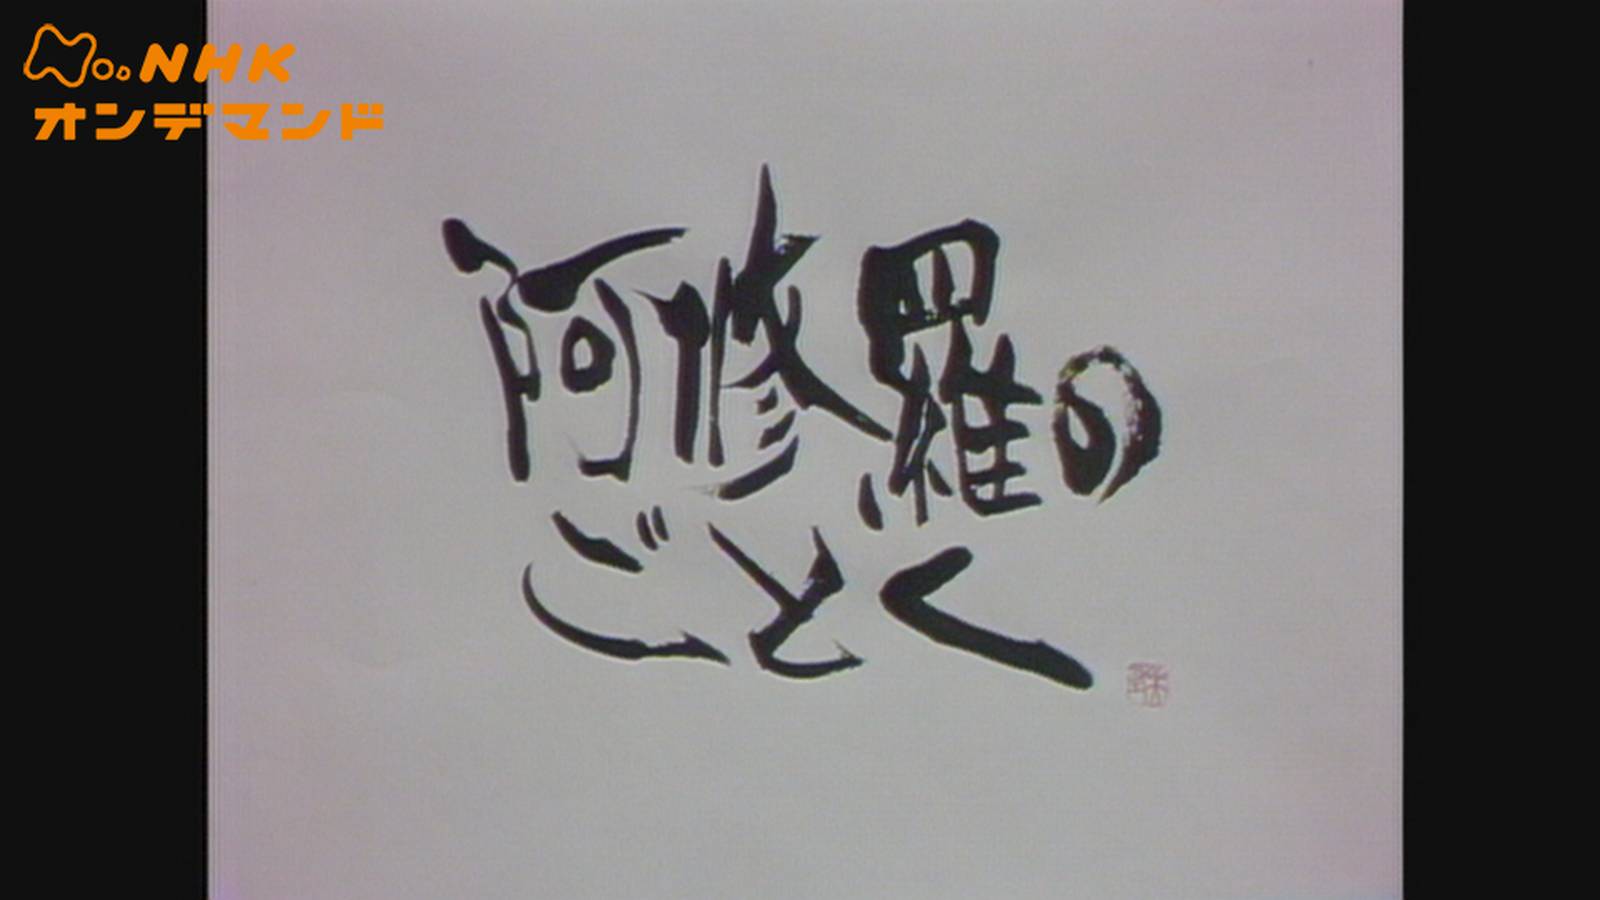 NHK
オンデマンド
阿修羅の
ごとく